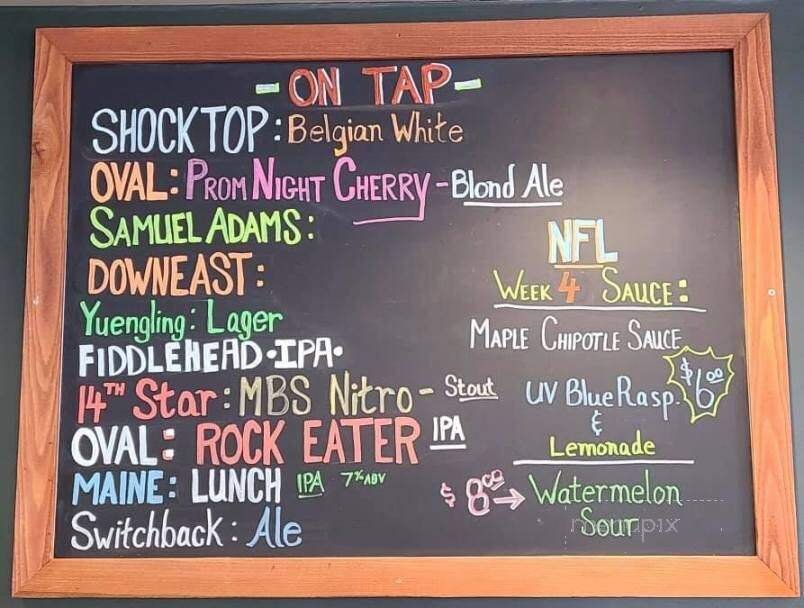 - ON TAP -
SHOCK TOP: Belgian White
OVAL: PROM NIGHT CHERRY - Blond Ale
SAMUEL ADAMS:
DOWNEAST:
Yuengling: Lager
FIDDLEHEAD • IPA •
14TH Star: MBS Nitro - Stout
OVAL: ROCK EATER IPA
MAINE: LUNCH IPA 7% ABV
Switchback: Ale
NFL
WEEK 4 SAUCE:
MAPLE CHIPOTLE SAUCE
$6.00
UV Blue Rasp.
&
Lemonade
$8.00 → Watermelon
Sour
menupix